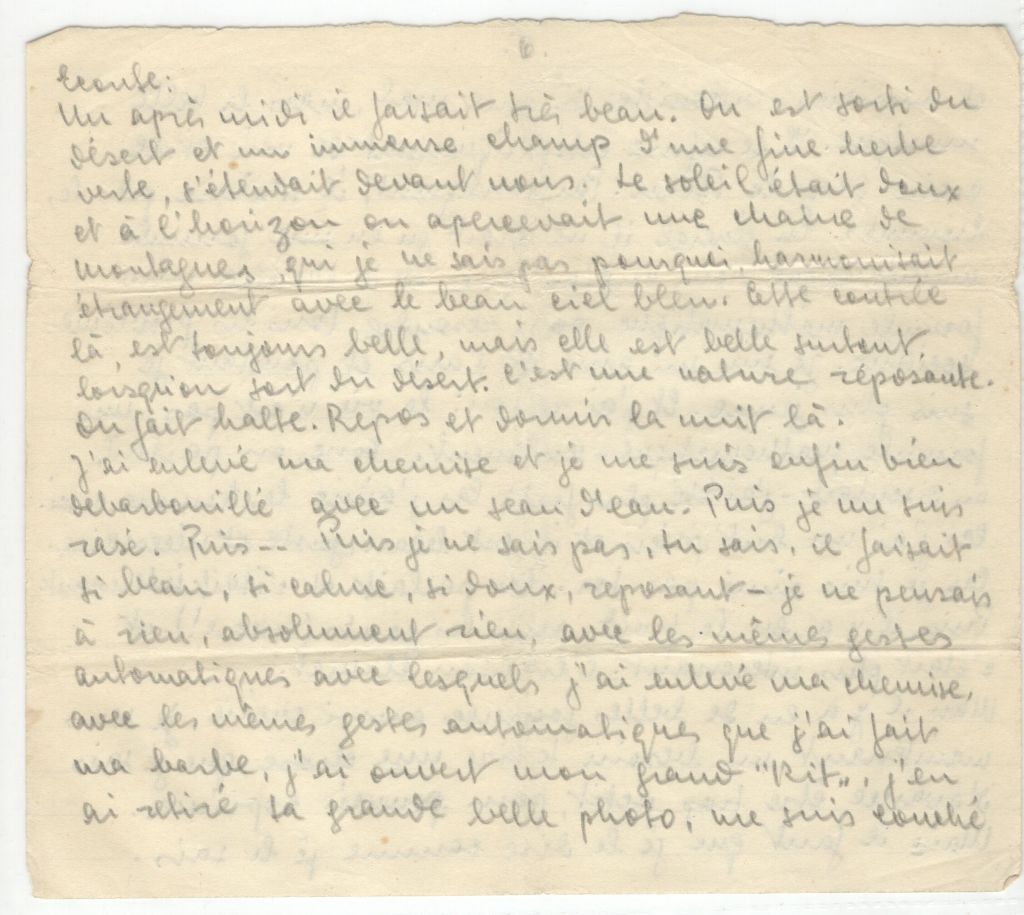 6.
Ecoute:
Un après midi il faisait très beau. On est sorti du
désert et un immense champ d'une fine herbe
verte, s'étendait devant nous. Le soleil était doux
et à l'horizon on apercevait une chaine de
montagnes, qui je ne sais pas pourquoi, harmonisait
étrangement avec le beau ciel bleu. Cette contrée
là, est toujours belle, mais elle est belle surtout,
lorsqu'on sort du désert. C'est une nature réposante.
On fait halte. Repos et dormir la nuit là.
J'ai enlevé ma chemise et je me suis enfin bien
débarbouillé avec un seau d'eau. Puis je me suis
rasé. Puis -- Puis je ne sais pas, tu sais, il faisait
si beau, si calme, si doux, reposant - je ne pensais
à rien, absolument rien, avec les mêmes gestes
automatiques avec lesquels j'ai enlevé ma chemise,
avec les mêmes gestes automatiques que j'ai fait
ma barbe, j'ai ouvert mon grand "Kit„, j'en
ai retiré ta grande belle photo, me suis couché